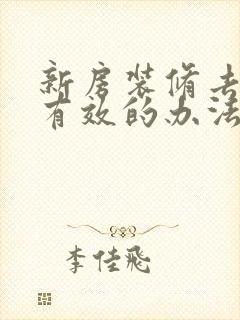 新房装修去
有效的办法
李佳飛